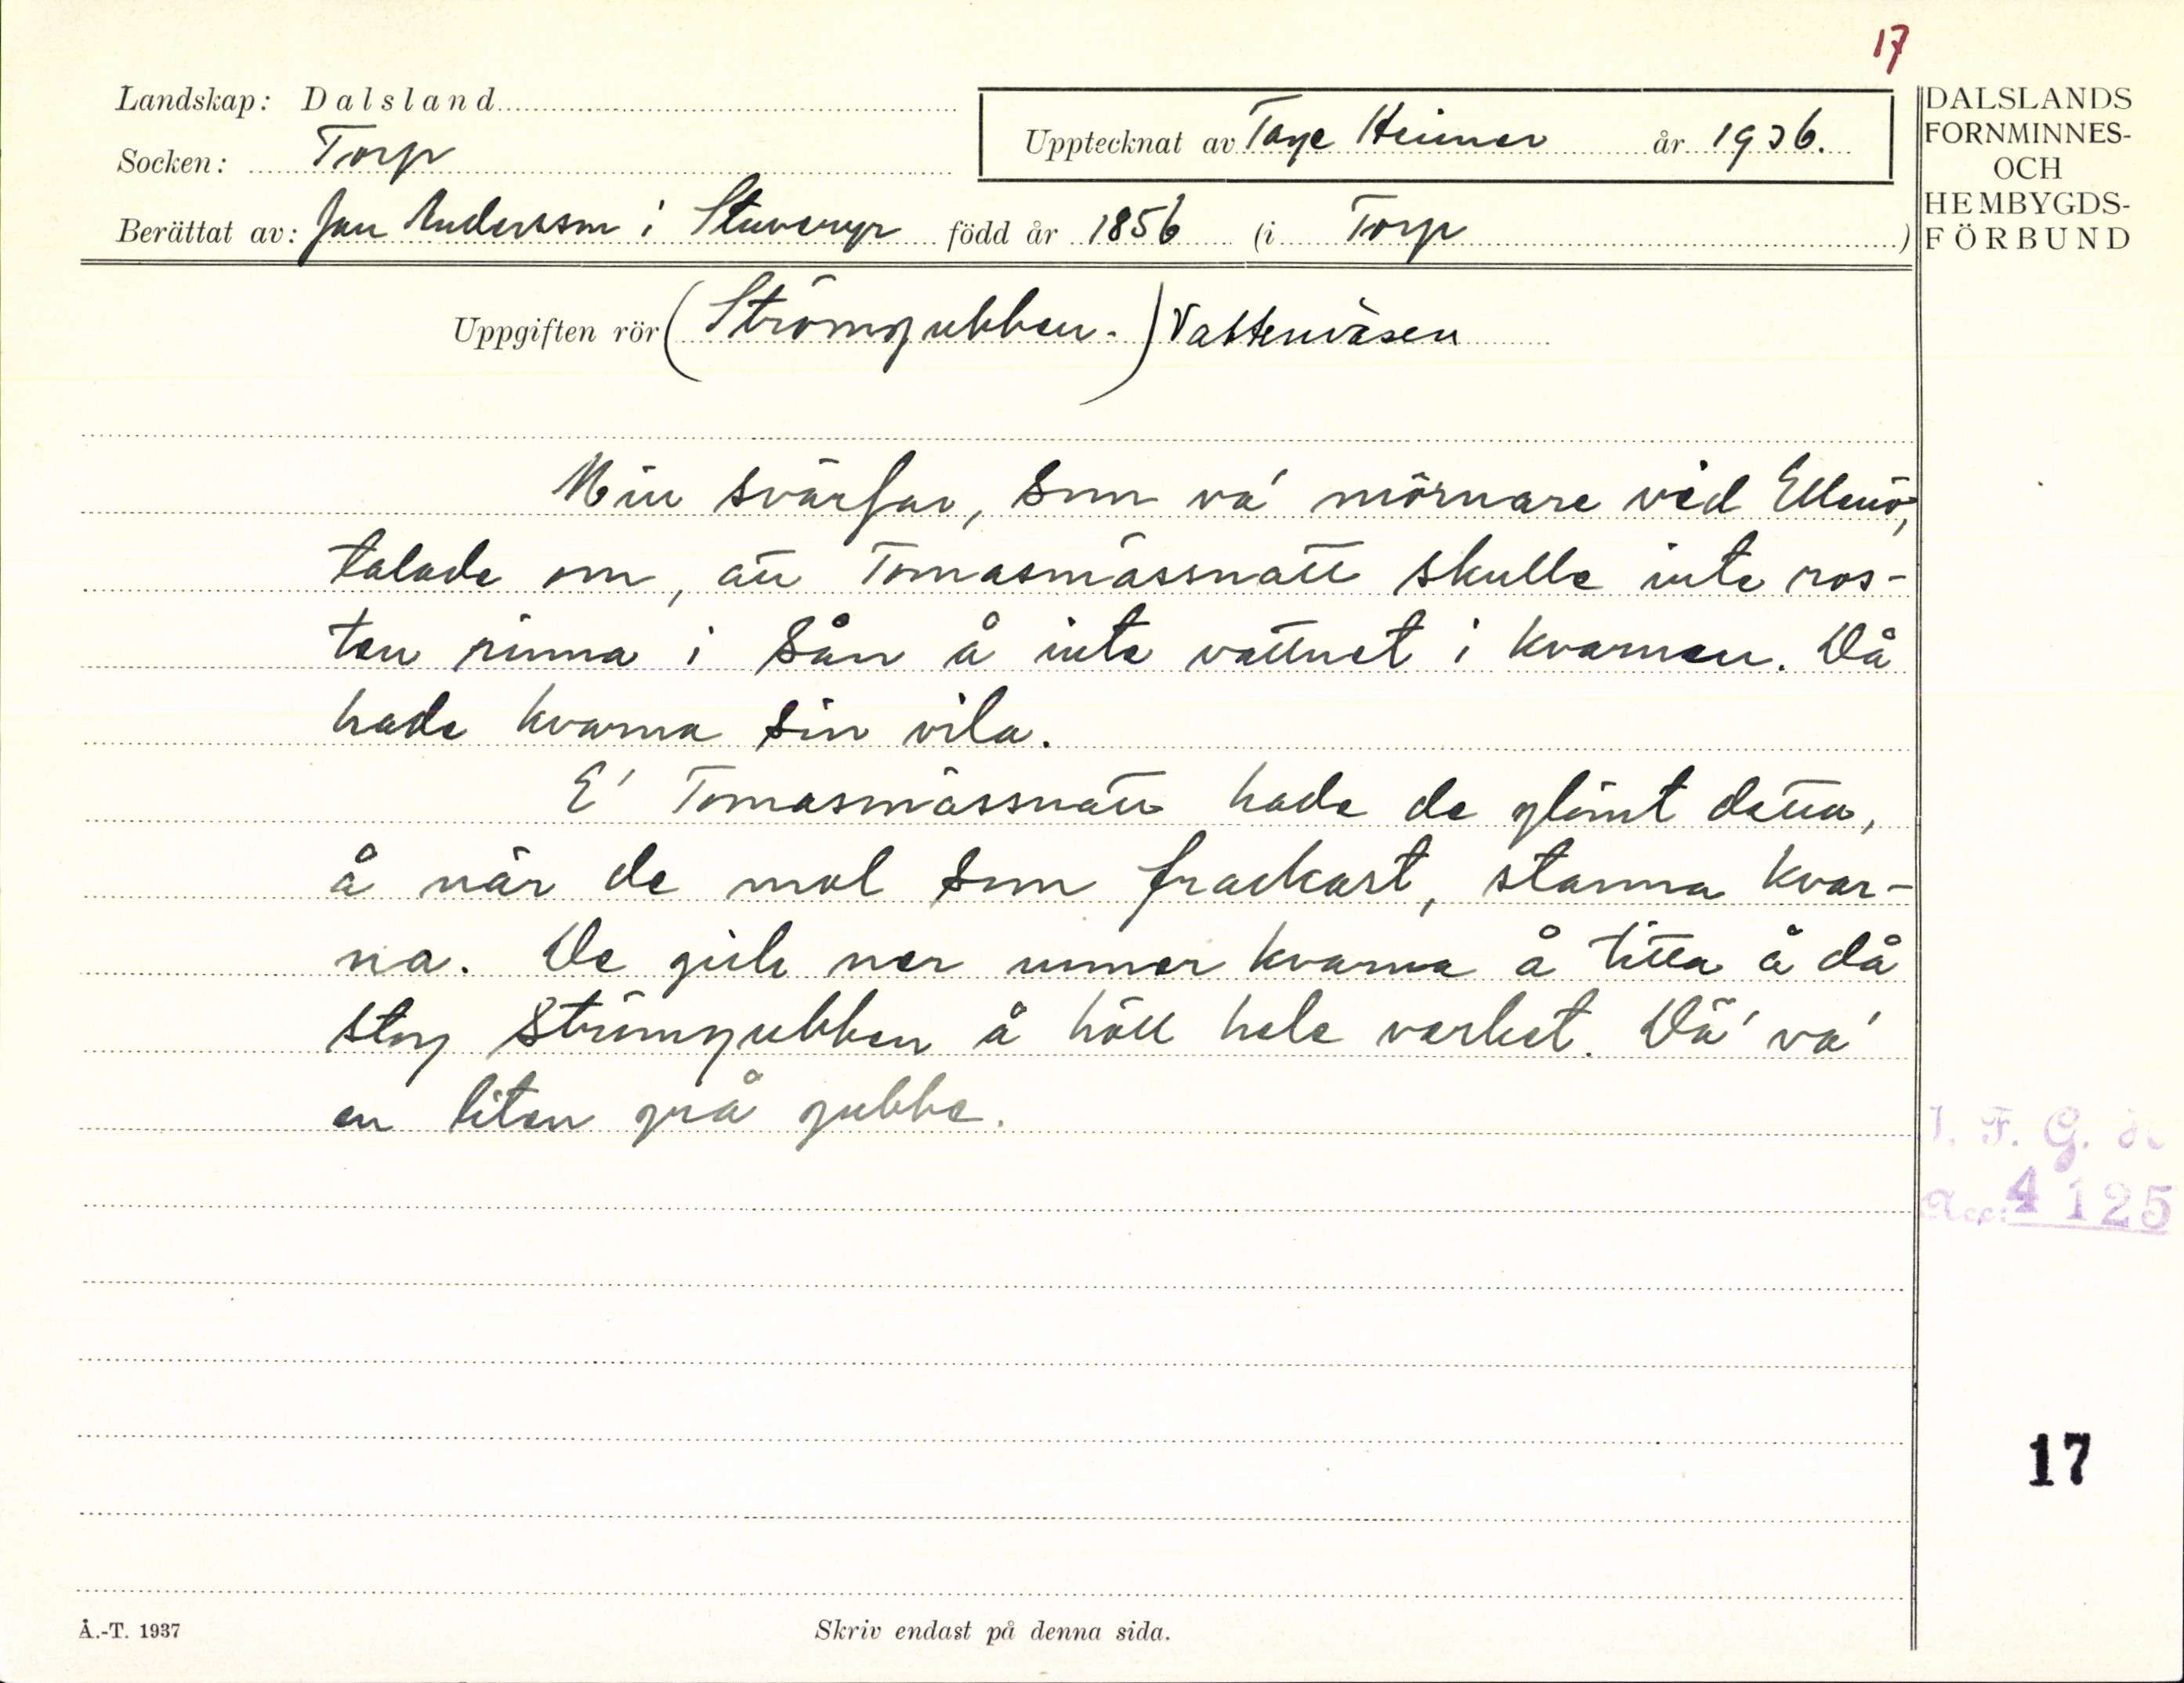 17
Landskap: Dalsland
Upptecknat av Tage Heimer år 1936.
Socken: Torp
Berättat av: Jan Andersson i Stuveryr född år 1856 (i Torp)
DALSLANDS
FORNMINNES-
OCH
HEMBYGDS-
FÖRBUND
Uppgiften rör (Strömgubben.) Vattenväsen
Min svärfar, som va' mörnare vid Ellenö,
talade om, att Tomasmässnatt skulle inte ros-
ten rinna i sån å inte vattnet i kvarnen. Då
hade kvarna sin vila.
E' Tomasmässnatt hade de glömt detta,
å när de mol som frackast, stanna kvar-
na. De gick ner unner kvarna å titta å då
stog Strömgubben å höll hele verket. Dä' va'
en liten grå gubbe.
I. F. G. 
Acc: 4125
17
Å.-T. 1937
Skriv endast på denna sida.